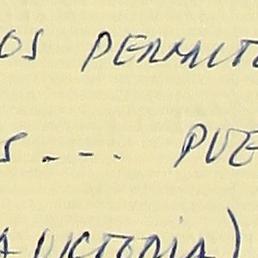 OS PERMITE
S ... PUE
A VICTORIA)